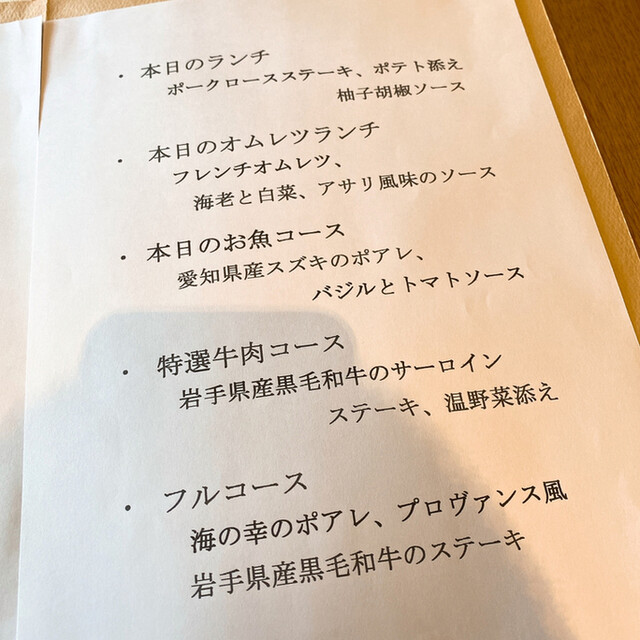 ・本日のランチ
ポークロースステーキ、ポテト添え
柚子胡椒ソース
・本日のオムレツランチ
フレンチオムレツ、
海老と白菜、アサリ風味のソース
・本日のお魚コース
愛知県産スズキのポアレ、
バジルとトマトソース
・特選牛肉コース
岩手県産黒毛和牛のサーロイン
ステーキ、温野菜添え
・フルコース
海の幸のポアレ、プロヴァンス風
岩手県産黒毛和牛のステーキ